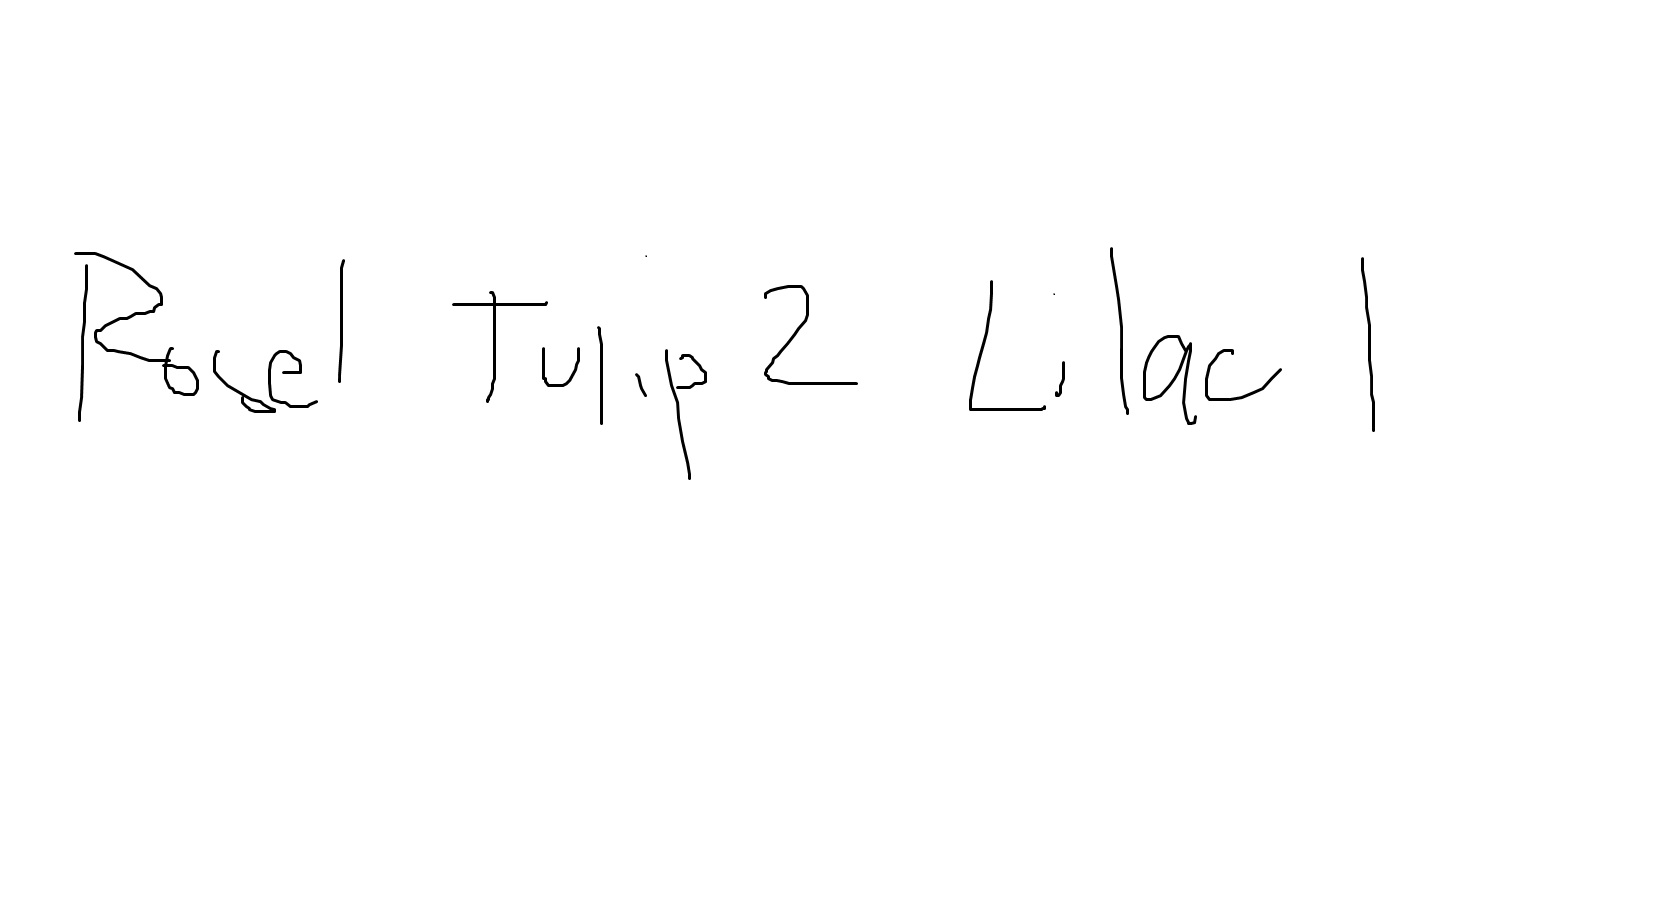 Rose1 Tulip2 Lilac 1